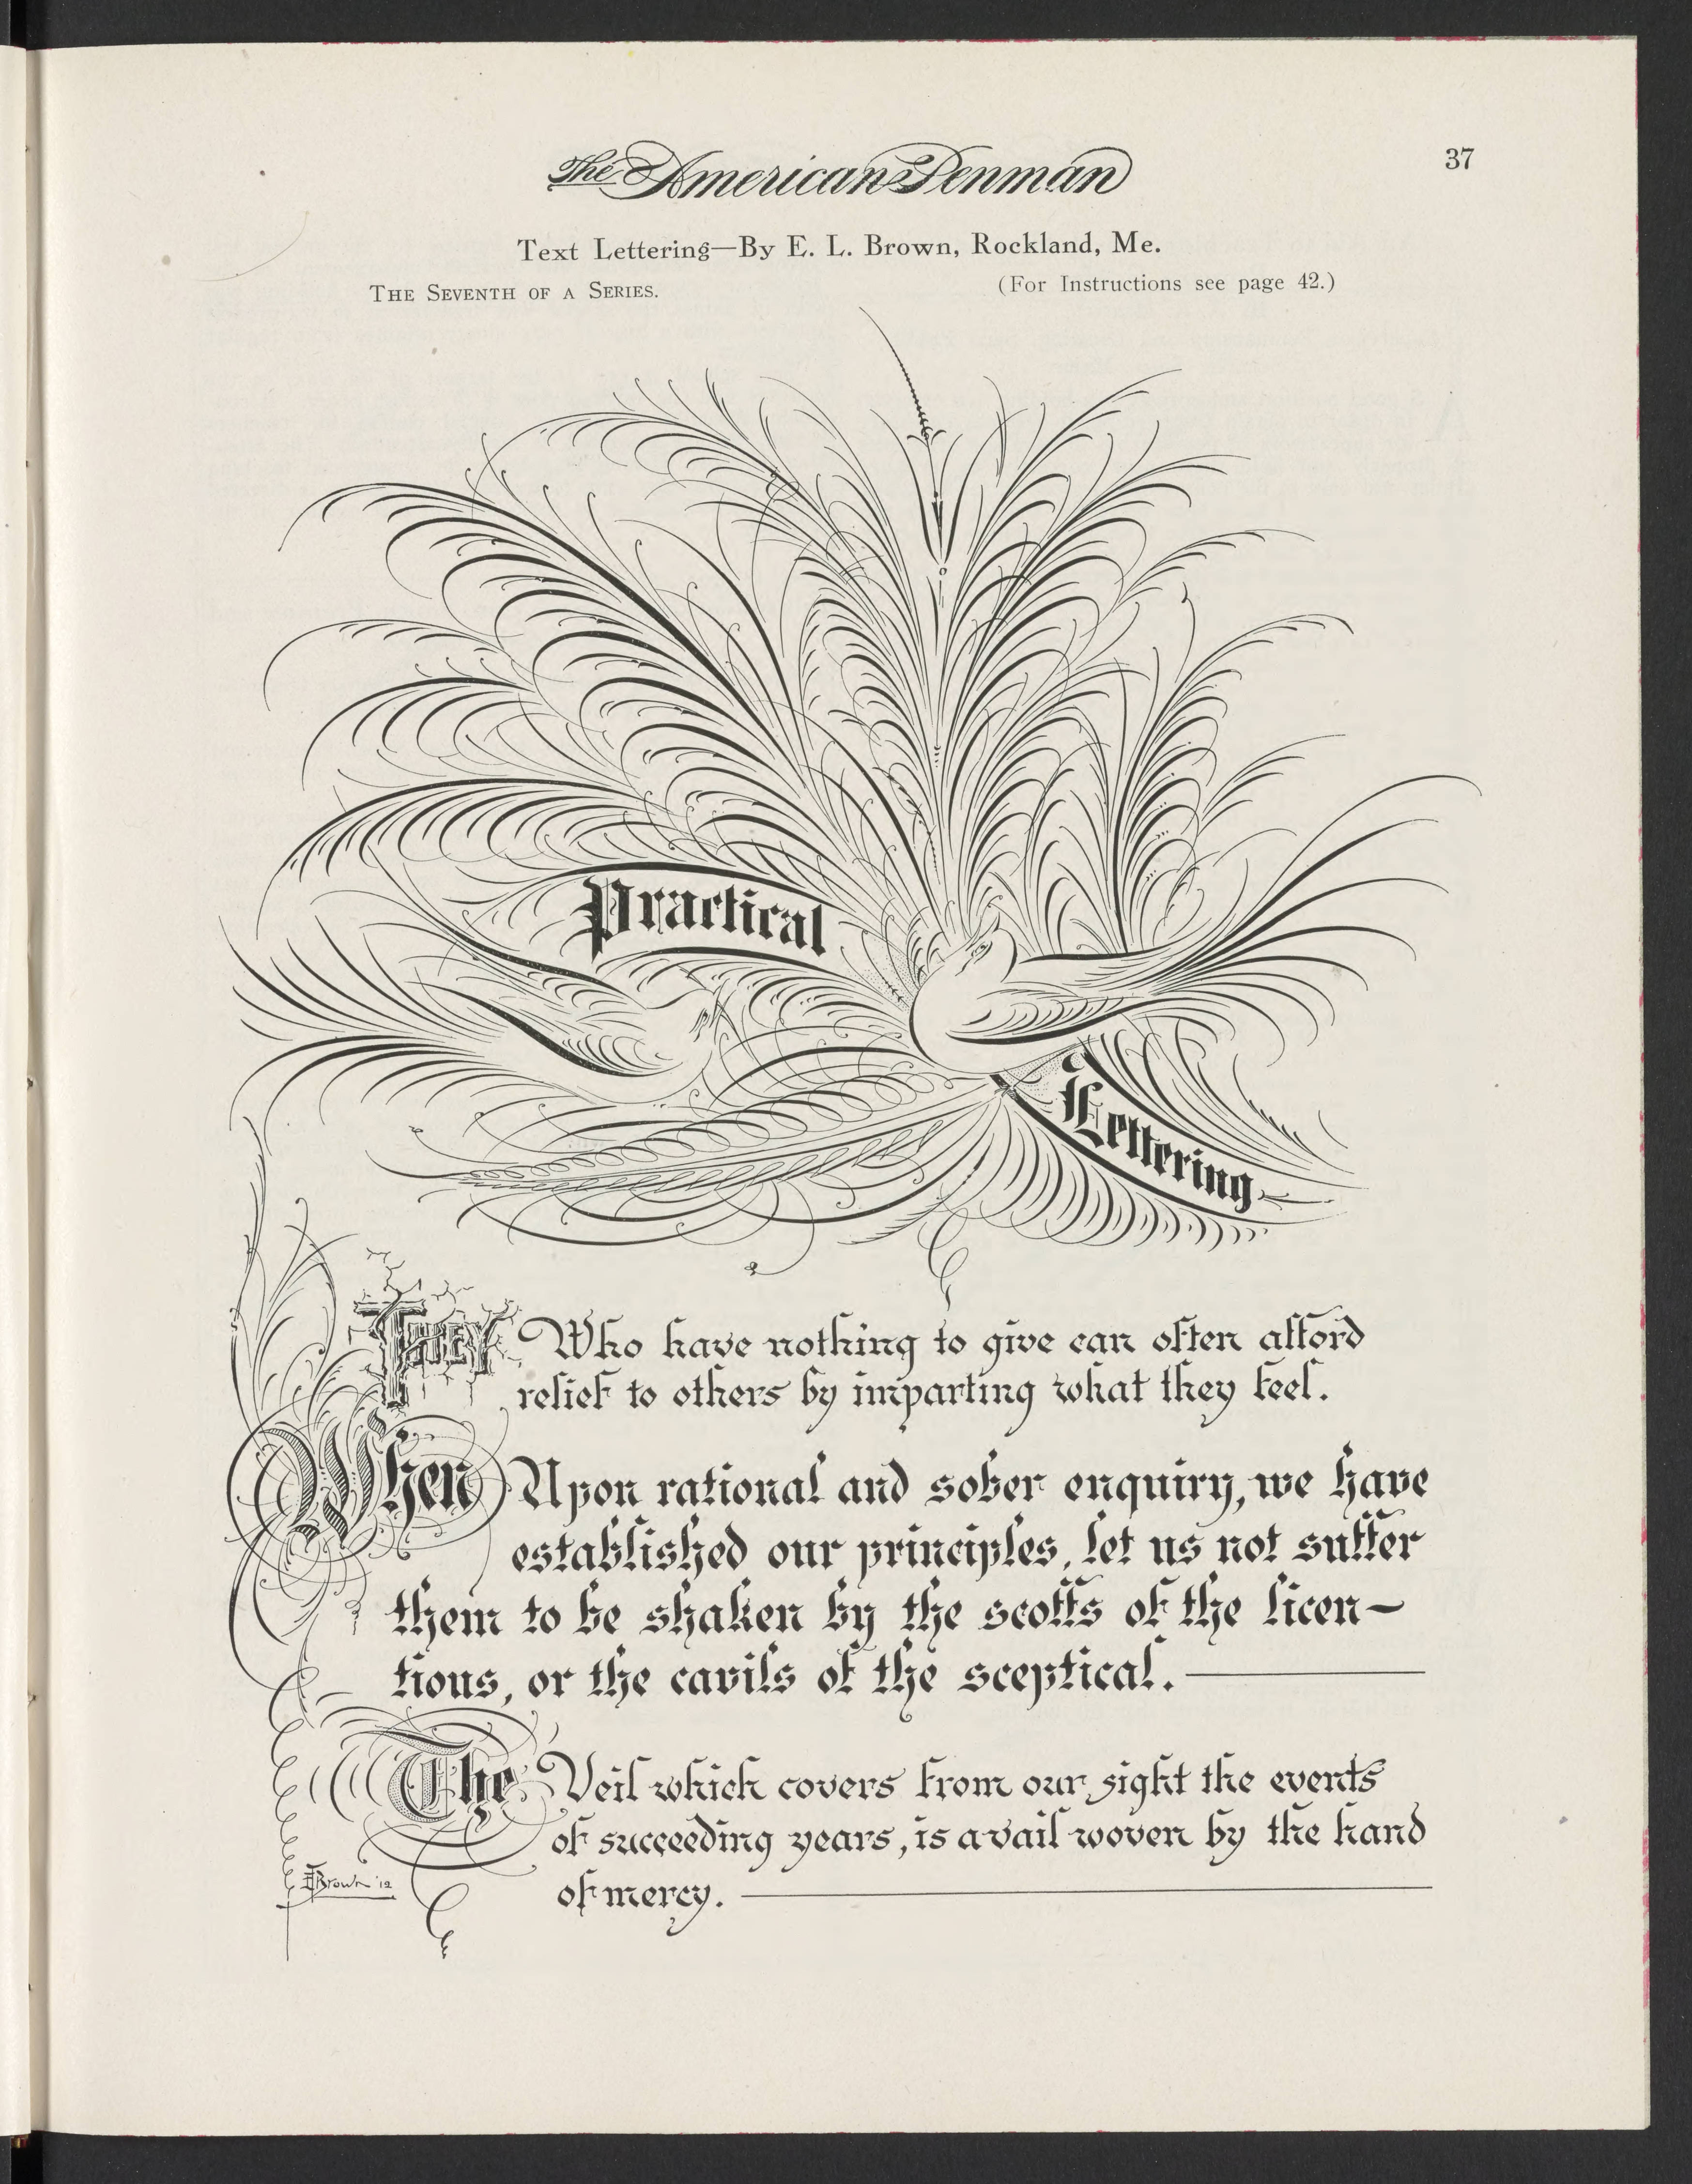 The American Penman
37
Text Lettering—By E. L. Brown, Rockland, Me.
The Seventh of a Series.
(For Instructions see page 42.)
Practical
Lettering
They Who have nothing to give can often afford
relief to others by imparting what they feel.
When Upon rational and sober enquiry, we have
established our principles, let us not suffer
them to be shaken by the scoffs of the licen-
tious, or the cavils of the sceptical.
The Veil which covers from our sight the events
of succeeding years, is a vail woven by the hand
of mercy.
E Brown '12